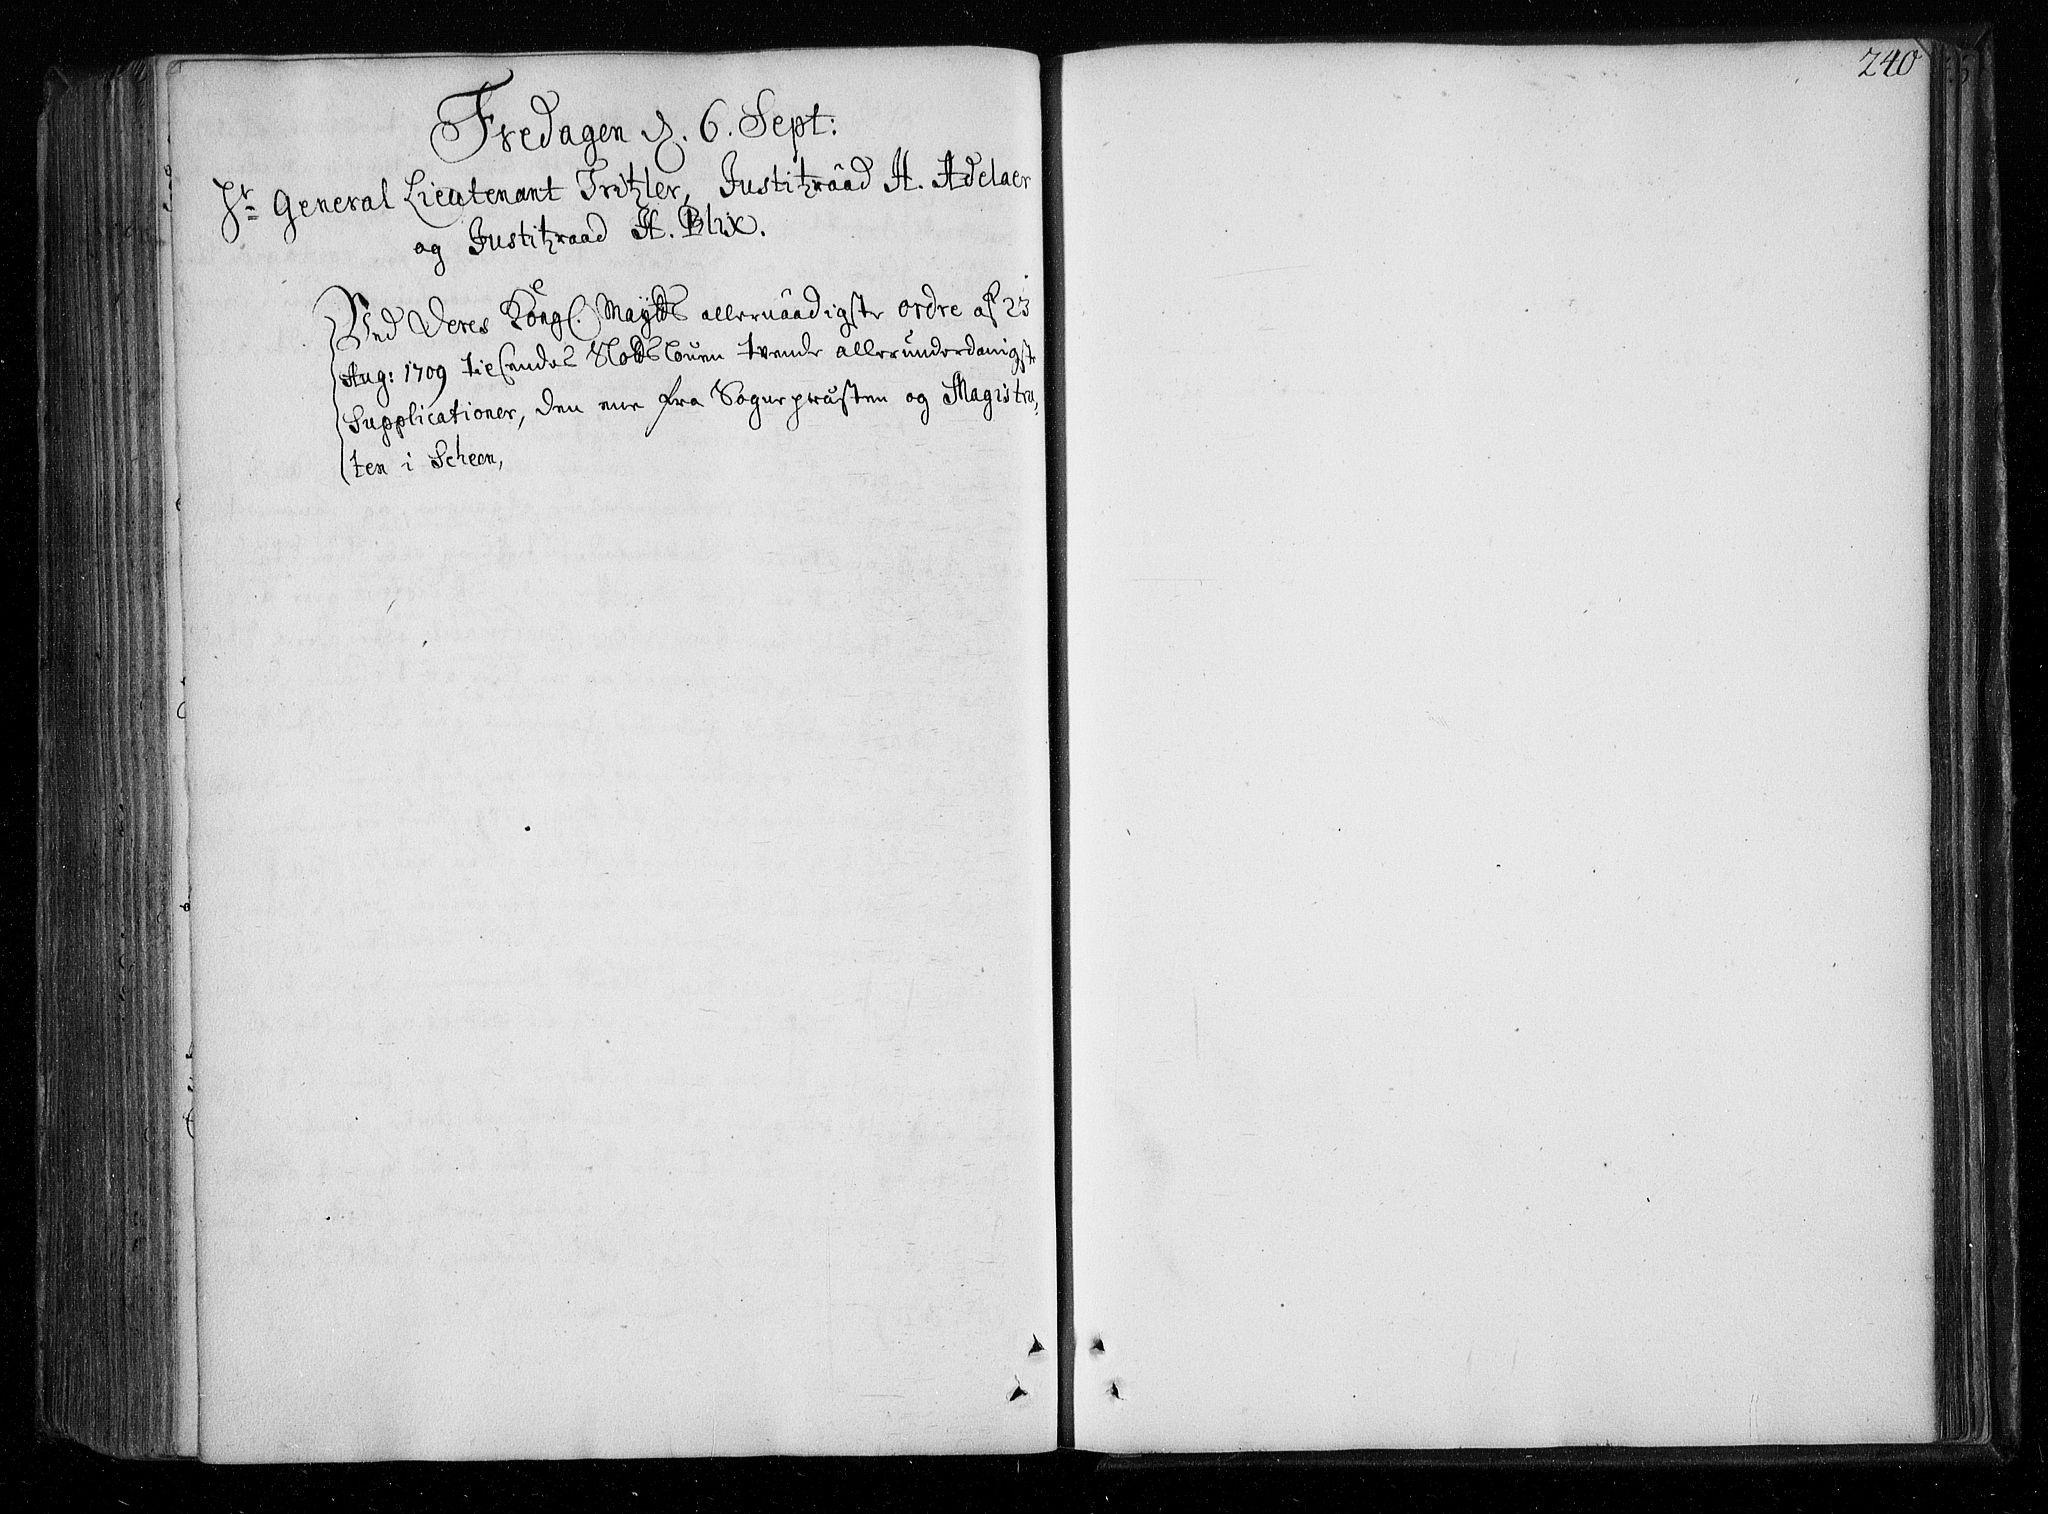 240
Fredagen d. 6. Sept:
Hr General Lieutenant Tritzler, Justitzraad H. Adelaer
og Justitzraad H. Blix.
Ved Deres Kongel. Maytts allernaadigste ordre af 23
Aug: 1709 tilsendes Slottsloven tvende allerunderdanigste
Supplicationer, den ene fra Sogneprästen og Magistra,
ten i Scheen,